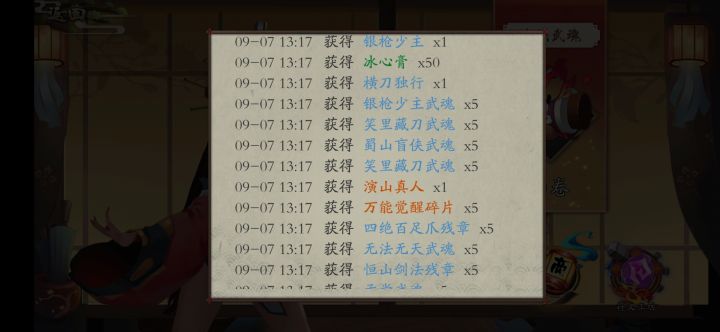 09-07 13:17 获得 银枪少主 x1
09-07 13:17 获得 冰心膏 x50
09-07 13:17 获得 横刀独行 x1
09-07 13:17 获得 银枪少主武魂 x5
09-07 13:17 获得 笑里藏刀武魂 x5
09-07 13:17 获得 蜀山盲侠武魂 x5
09-07 13:17 获得 笑里藏刀武魂 x5
09-07 13:17 获得 演山真人 x1
09-07 13:17 获得 万能觉醒碎片 x5
09-07 13:17 获得 四绝百足爪残章 x5
09-07 13:17 获得 无法无天武魂 x5
09-07 13:17 获得 恒山剑法残章 x5
09-07 13:17 获得
武魂
卷